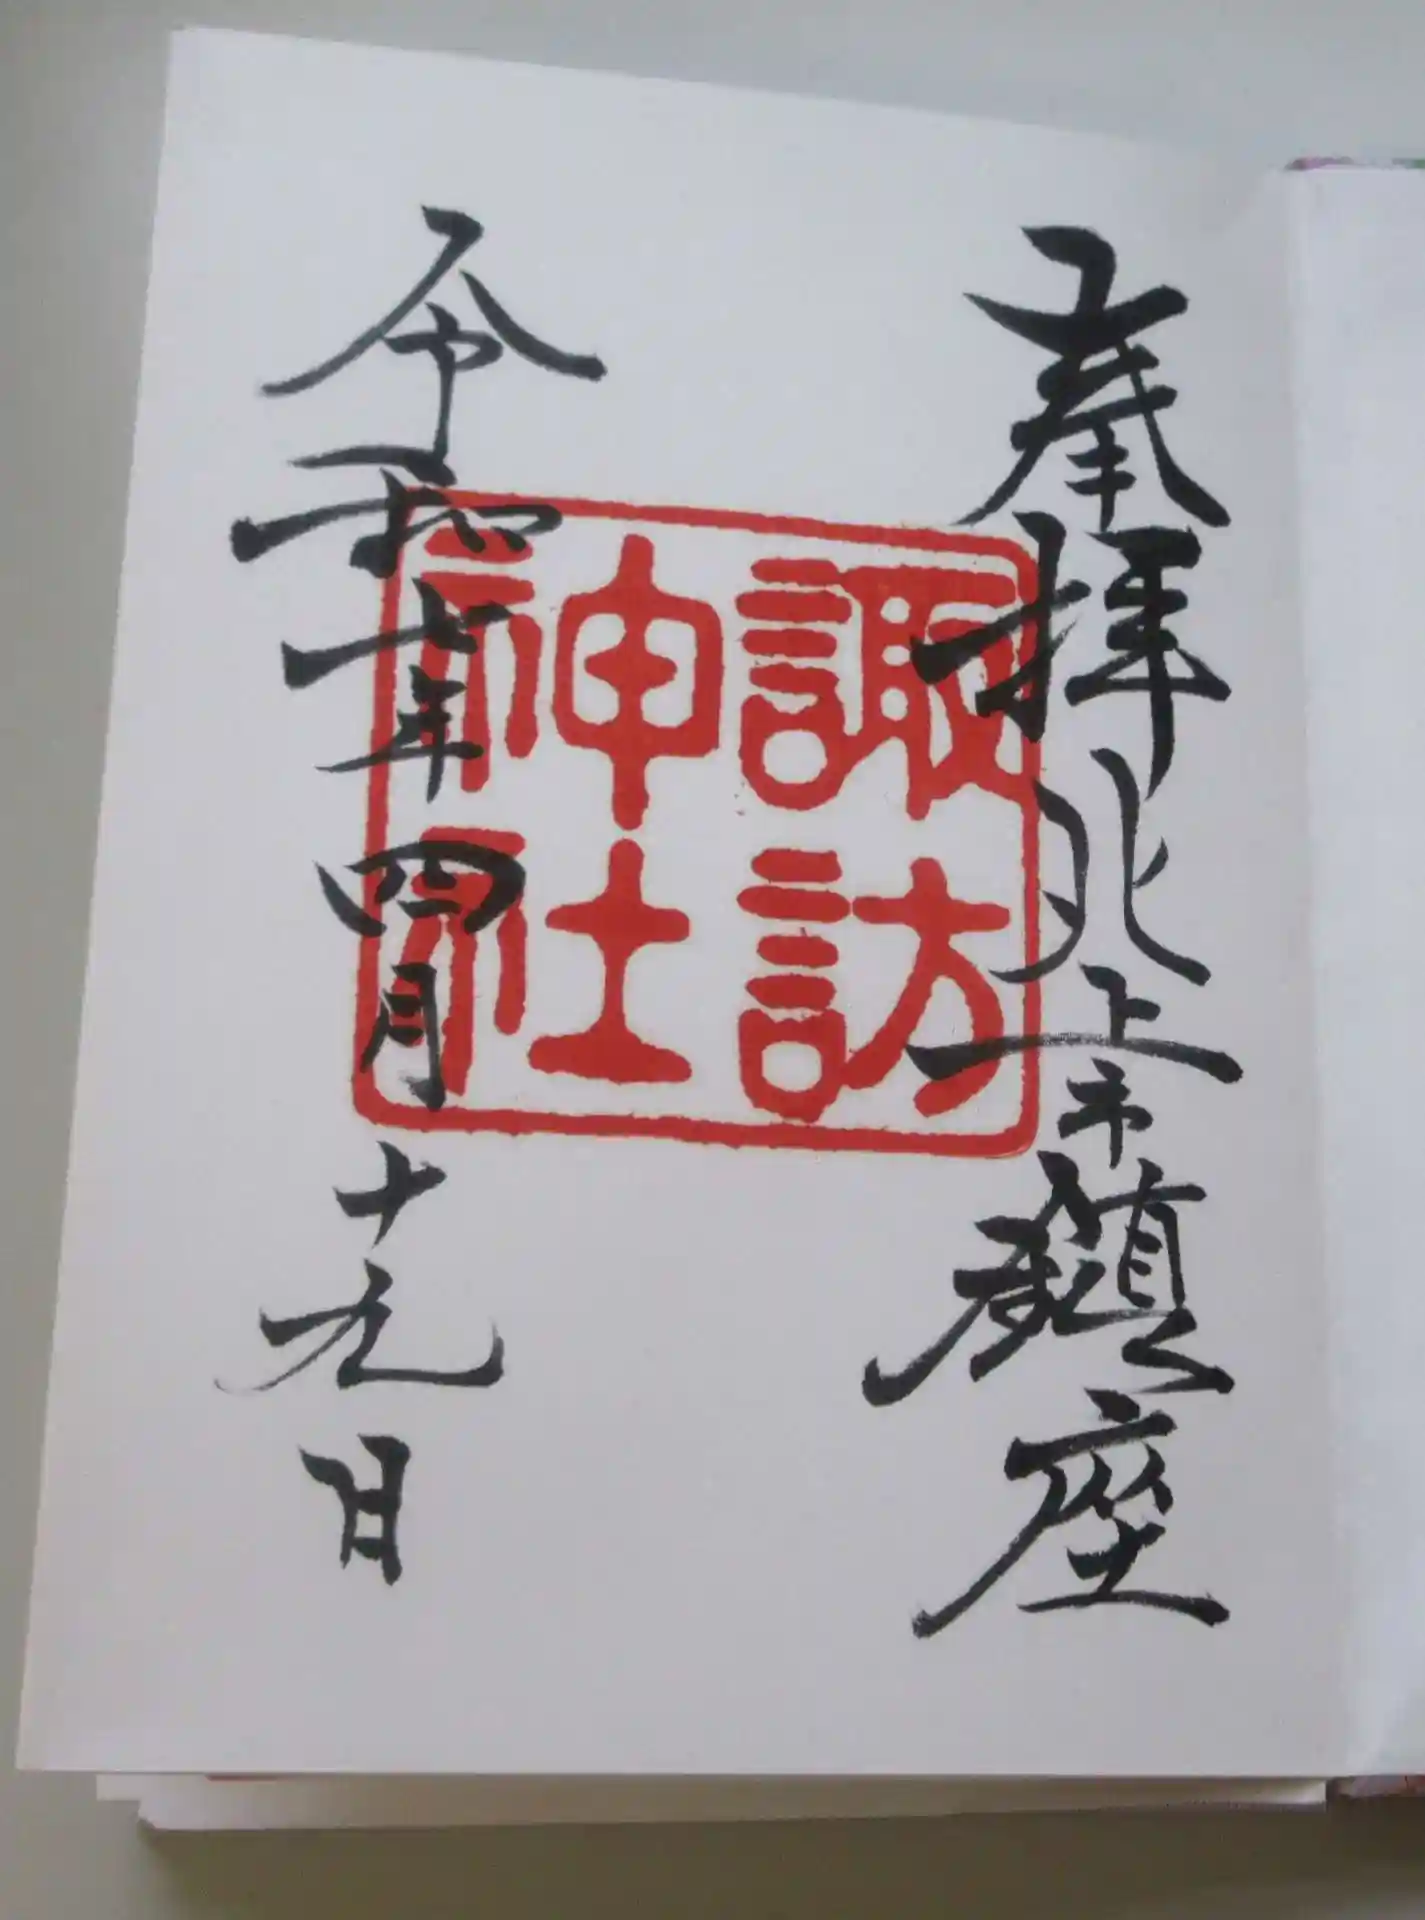 奉拝北上市鎮座
諏訪
神社
令和七年四月十九日